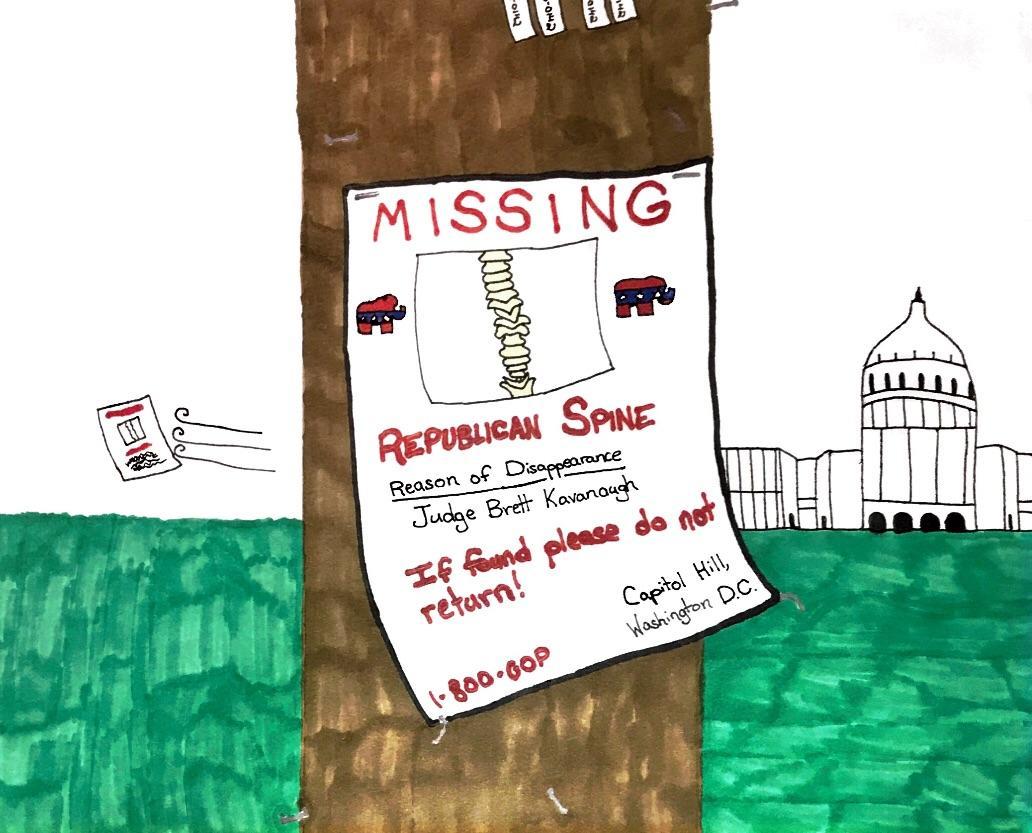 MISSING
REPUBLICAN SPINE
Reason of Disappearance
Judge Brett Kavanaugh
If found please do not
return!
Capitol Hill,
Washington D.C.
1-800-GOP